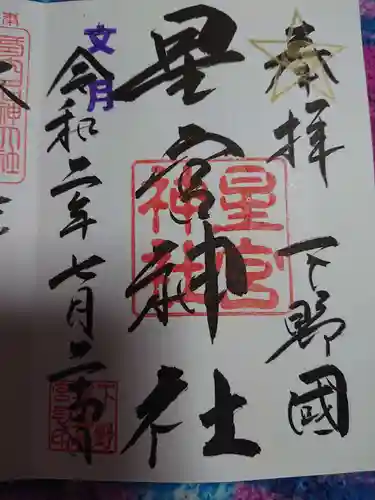 奉拝
下野國
星宮神社
星宮
神社
文月
令和二年七月二十四日
下野